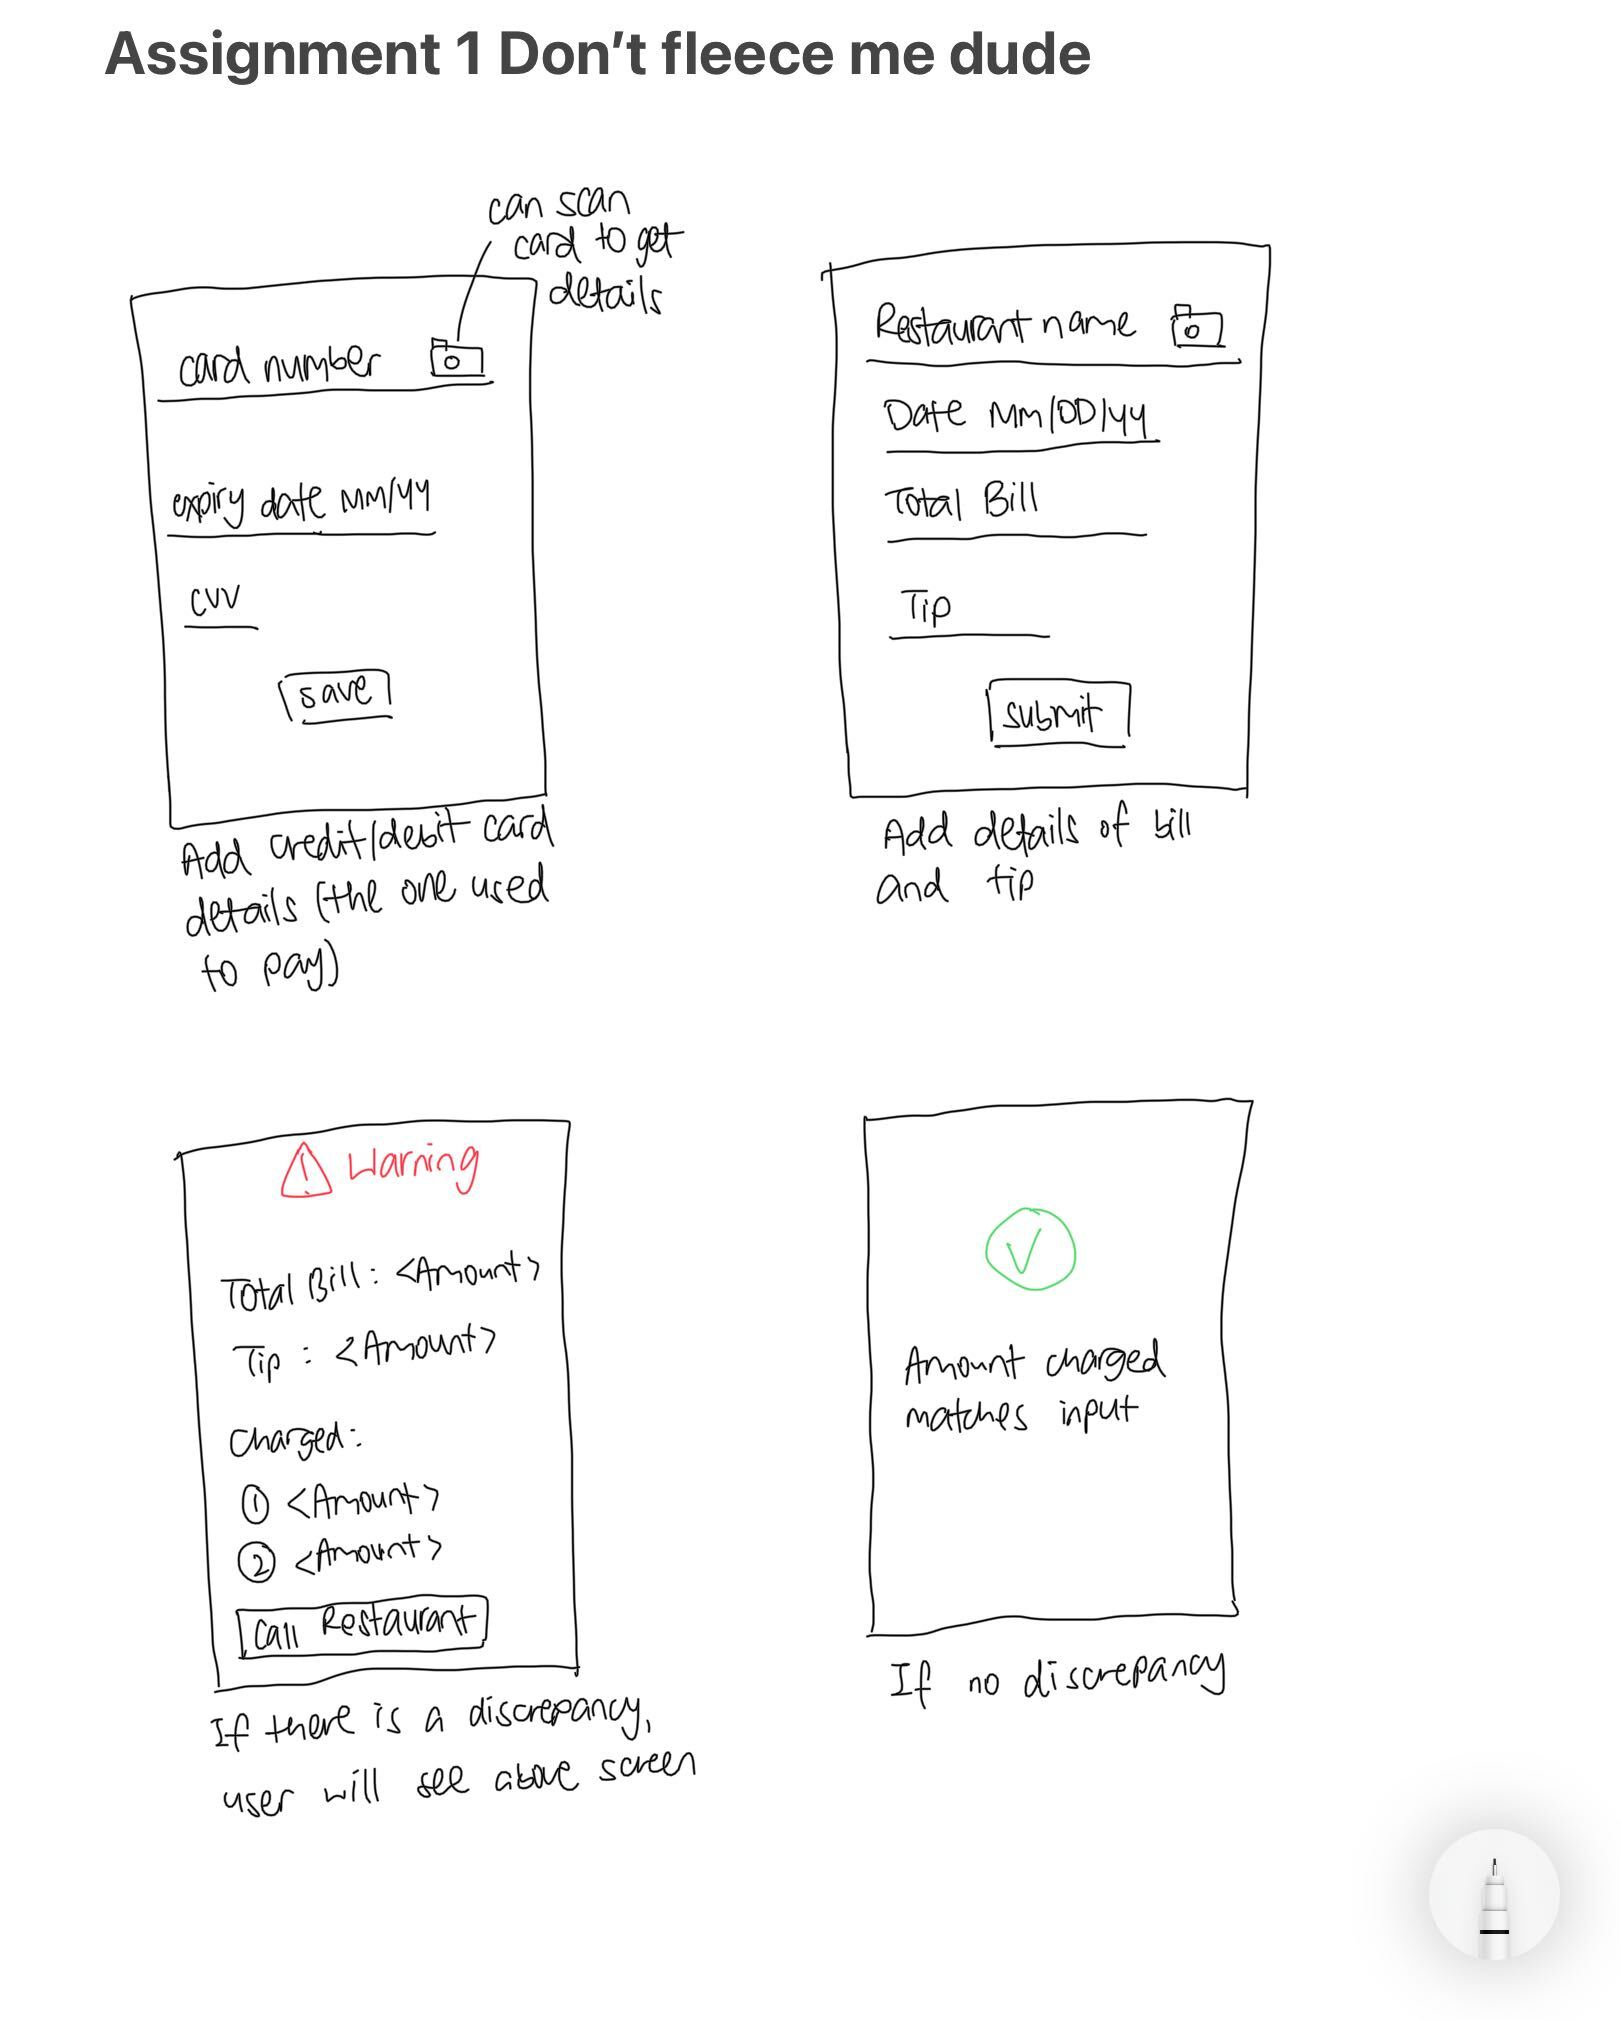 Assignment 1 Don't fleece me dude
can scan
card to get
details
card number
expiry date MM/YY
CVV
save
Add credit/debit card
details (the one used
to pay)
Restaurant name
Date MM/DD/YY
Total Bill
Tip
submit
Add details of bill
and tip
! Warning
Total Bill: <Amount>
Tip : <Amount>
Charged:
① <Amount>
② <Amount>
Call Restaurant
If there is a discrepancy,
user will see above screen
Amount charged
matches input
If no discrepancy